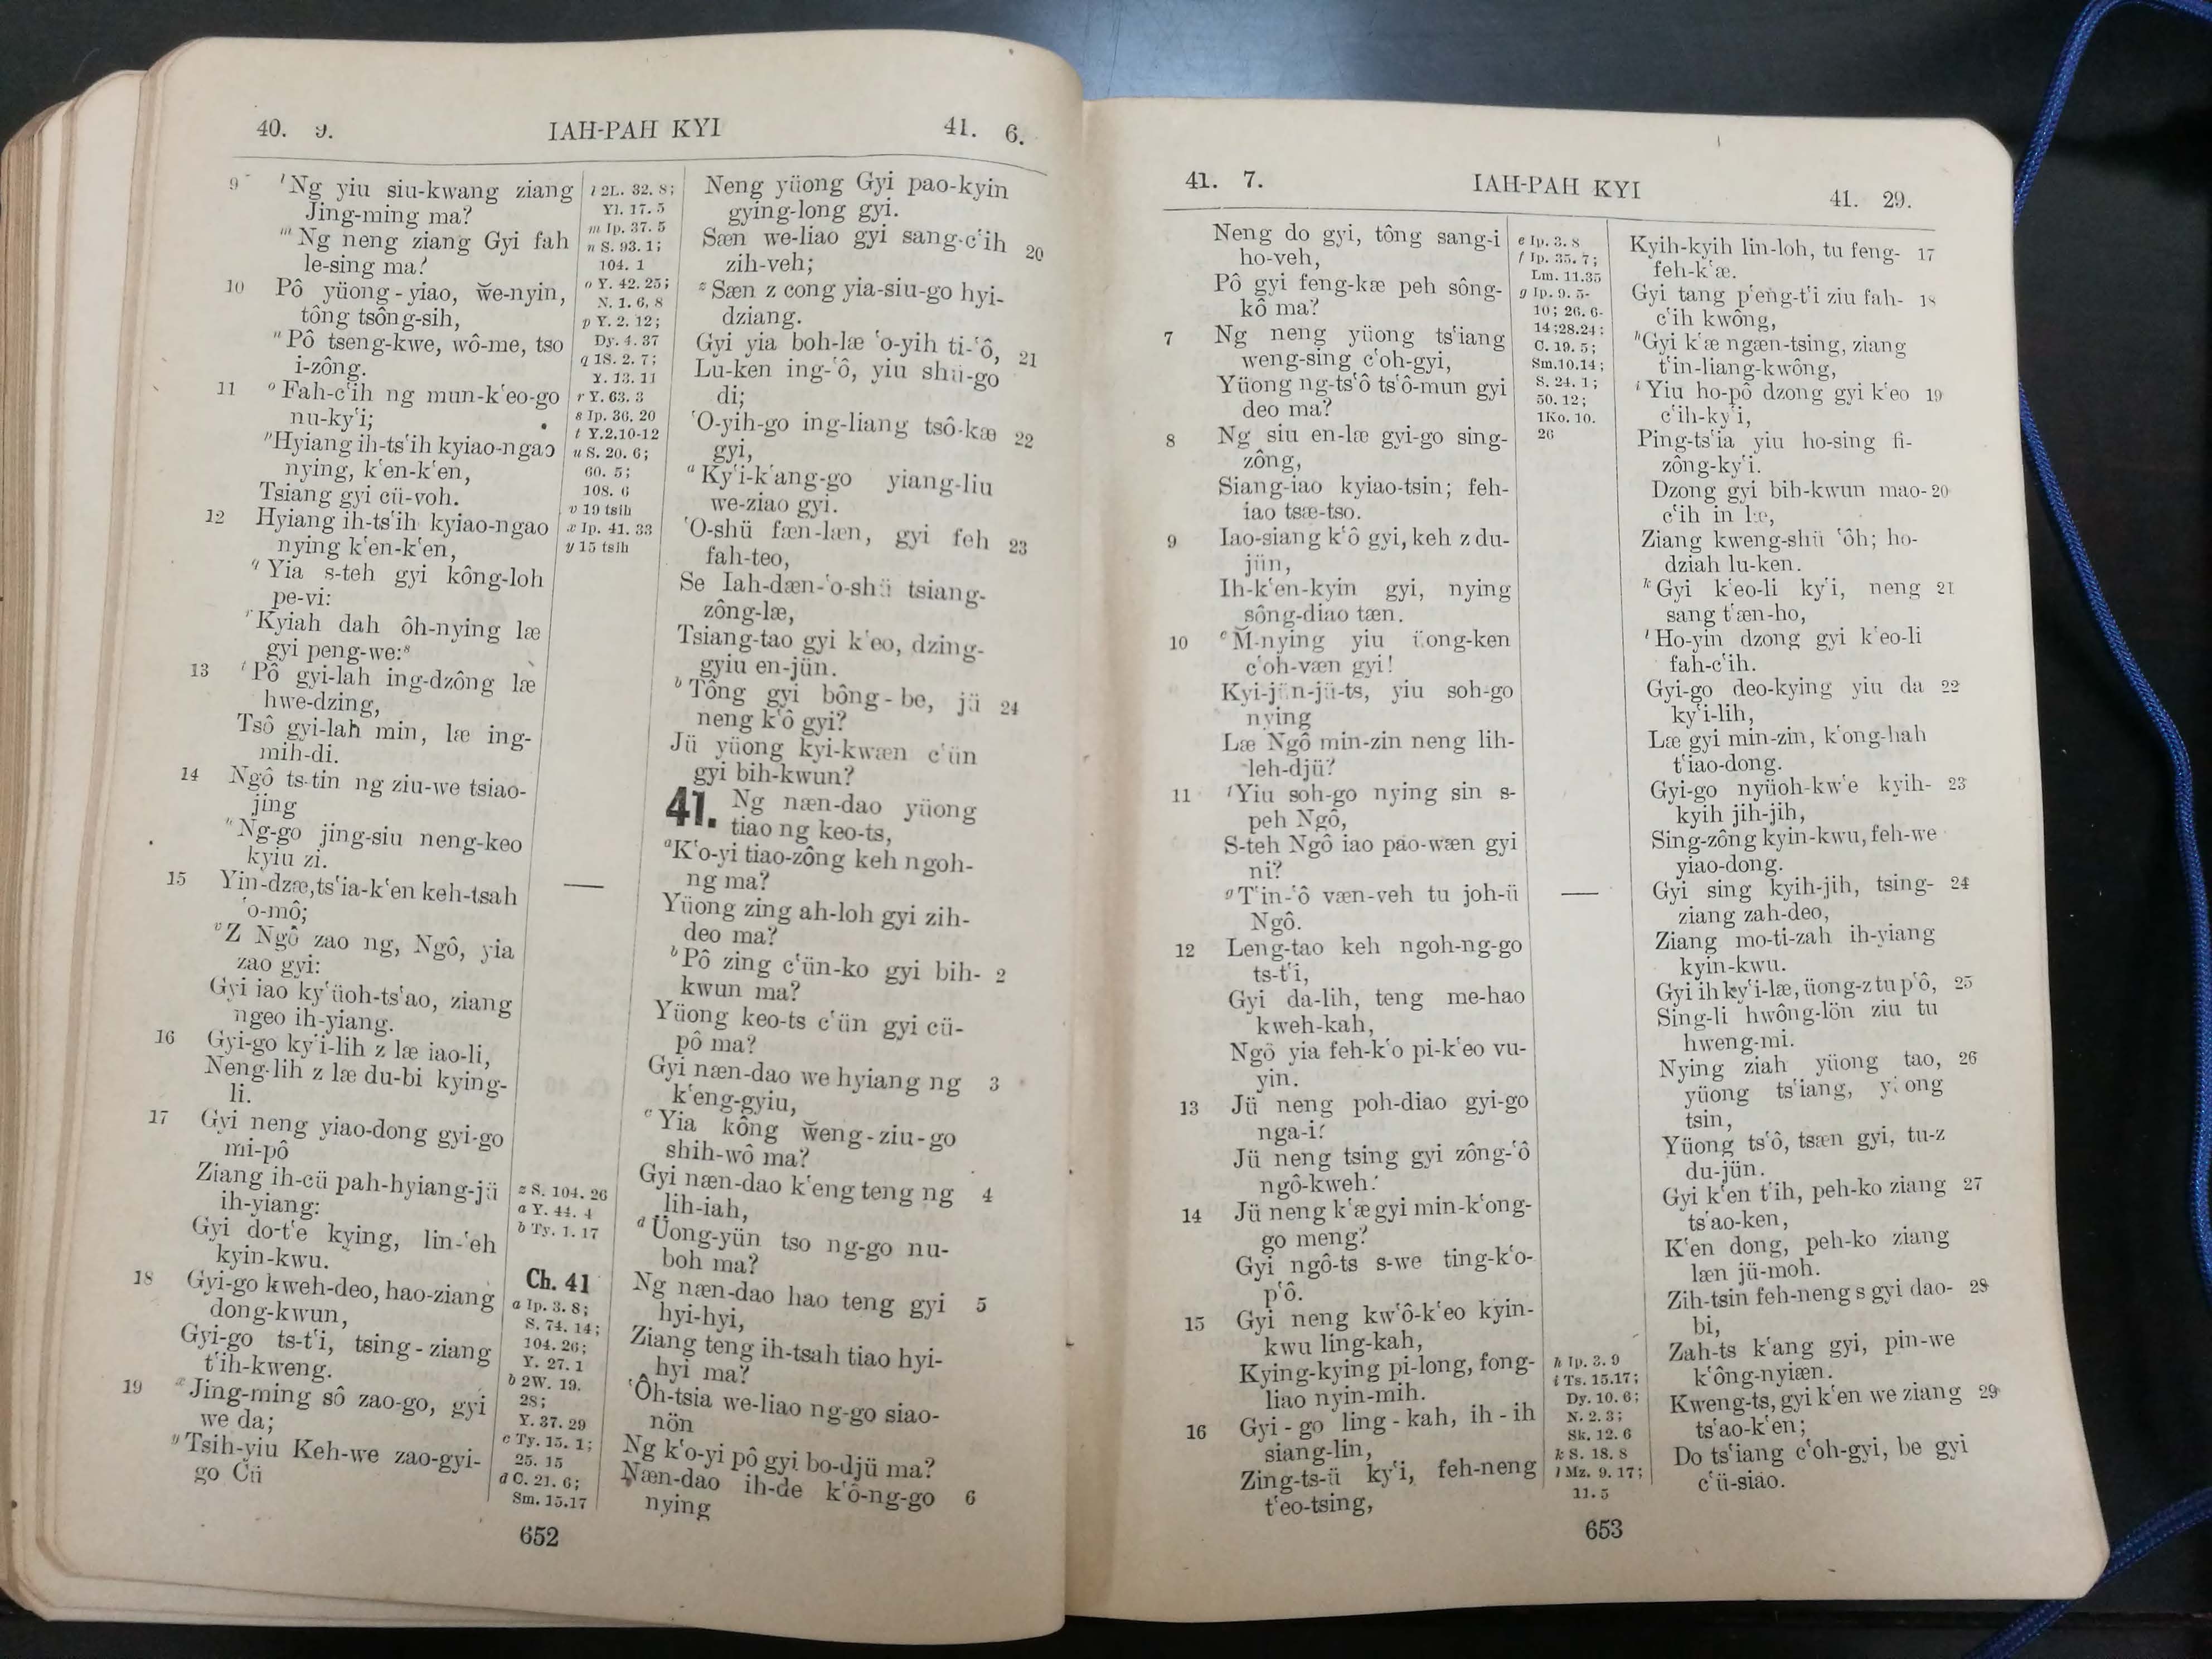 40. 9. IAH-PAH KYI 41. 6.
9 ˡNg yiu siu-kwang ziang
Jing-ming ma?
ᵐNg neng ziang Gyi fah
le-sing ma?
10 Pô yüong-yiao, w̆e-nyin,
tông tsông-sih,
ⁿPô tseng-kwe, wô-me, tso
i-zông.
11 ᵒFah-c‘ih ng mun-k‘eo-go
nu-ky‘i;
ᵖHyiang ih-ts‘ih kyiao-ngao
nying, k‘en-k‘en,
Tsiang gyi cü-voh.
12 Hyiang ih-ts‘ih kyiao-ngao
nying k‘en-k‘en,
ᑫYia s-teh gyi kông-loh
pe-vi:
ʳKyiah dah ôh-nying læ
gyi peng-we:ˢ
13 ᵗPô gyi-lah ing-dzông læ
hwe-dzing,
Tsô gyi-lah min, læ ing-
mih-di.
14 Ngô ts-tin ng ziu-we tsiao-
jing
ᵘNg-go jing-siu neng-keo
kyiu zi.
15 Yin-dzæ, ts‘ia-k‘en keh-tsah
‘o-mô;
ᵛZ Ngô zao ng, Ngô, yia
zao gyi:
Gyi iao ky‘üoh-ts‘ao, ziang
ngeo ih-yiang.
16 Gyi-go ky‘i-lih z læ iao-li,
Neng-lih z læ du-bi kying-
li.
17 Gyi neng yiao-dong gyi-go
mi-pô
Ziang ih-cü pah-hyiang-jü
ih-yiang:
Gyi do-t‘e kying, lin-‘eh
kyin-kwu.
18 Gyi-go kweh-deo, hao-ziang
dong-kwun,
Gyi-go ts-t‘i, tsing-ziang
t‘ih-kweng.
19 ˣJing-ming sô zao-go, gyi
we da;
ʸTsih-yiu Keh-we zao-gyi-
go Cü
l 2L. 32. 8;
Yl. 17. 5
m Ip. 37. 5
n S. 93. 1;
104. 1
o Y. 42. 25;
N. 1. 6, 8
p Y. 2. 12;
Dy. 4. 37
q 1S. 2. 7;
Y. 13. 11
r Y. 63. 3
s Ip. 36. 20
t Y.2.10-12
u S. 20. 6;
60. 5;
108. 6
v 19 tsih
x Ip. 41. 33
y 15 tsih
z S. 104. 26
a Y. 44. 4
b Ty. 1. 17
Ch. 41
a Ip. 3. 8;
S. 74. 14;
104. 26;
Y. 27. 1
b 2W. 19.
28;
Y. 37. 29
c Ty. 15. 1;
25. 15
d C. 21. 6;
Sm. 15.17
Neng yüong Gyi pao-kyin
gying-long gyi.
Sæn we-liao gyi sang-c‘ih 20
zih-veh;
ᶻSæn z cong yia-siu-go hyi-
dziang.
Gyi yia boh-læ ‘o-yih ti-‘ô, 21
Lu-ken ing-‘ô, yiu shü-go
di;
‘O-yih-go ing-liang tsô-kæ 22
gyi,
ᵃKy‘i-k‘ang-go yiang-liu
we-ziao gyi.
‘O-shü fæn-læn, gyi feh 23
fah-teo,
Se Iah-dæn-‘o-shü tsiang-
zông-læ,
Tsiang-tao gyi k‘eo, dzing-
gyiu en-jün.
ᵇTông gyi bông-be, jü 24
neng k‘ô gyi?
Jü yüong kyi-kwæn c‘ün
gyi bih-kwun?
41. Ng næn-dao yüong
tiao ng keo-ts,
ᵃK‘o-yi tiao-zông keh ngoh-
ng ma?
Yüong zing ah-loh gyi zih-
deo ma?
ᵇPô zing c‘ün-ko gyi bih- 2
kwun ma?
Yüong keo-ts c‘ün gyi cü-
pô ma?
Gyi næn-dao we hyiang ng 3
k‘eng-gyiu,
ᶜYia kông w̆eng-ziu-go
shih-wô ma?
Gyi næn-dao k‘eng teng ng 4
lih-iah,
ᵈÜong-yün tso ng-go nu-
boh ma?
Ng næn-dao hao teng gyi 5
hyi-hyi,
Ziang teng ih-tsah tiao hyi-
hyi ma?
‘Ôh-tsia we-liao ng-go siao-
nön
Ng k‘o-yi pô gyi bo-djü ma?
Næn-dao ih-de k‘ô-ng-go 6
nying
652
41. 7. IAH-PAH KYI 41. 29.
Neng do gyi, tông sang-i
ho-veh,
Pô gyi feng-kæ peh sông-
kô ma?
7 Ng neng yüong ts‘iang
weng-sing c‘oh-gyi,
Yüong ng-ts‘ô ts‘ô-mun gyi
deo ma?
8 Ng siu en-læ gyi-go sing-
zông,
Siang-iao kyiao-tsin; feh-
iao tsæ-tso.
9 Iao-siang k‘ô gyi, keh z du-
jün,
Ih-k‘en-kyin gyi, nying
sông-diao tæn.
10 ᵉM̆-nying yiu üong-ken
c‘oh-væn gyi!
Kyi-jün-jü-ts, yiu soh-go
nying
Læ Ngô min-zin neng lih-
leh-djü?
11 ᶠYiu soh-go nying sin s-
peh Ngô,
S-teh Ngô iao pao-wæn gyi
ni?
ᵍT‘in-‘ô væn-veh tu joh-ü
Ngô.
12 Leng-tao keh ngoh-ng-go
ts-t‘i,
Gyi da-lih, teng me-hao
kweh-kah,
Ngô yia feh-k‘o pi-k‘eo vu-
yin.
13 Jü neng poh-diao gyi-go
nga-i?
Jü neng tsing gyi zông-‘ô
ngô-kweh?
14 Jü neng k‘æ gyi min-k‘ong-
go meng?
Gyi ngô-ts s-we ting-k‘o-
p‘ô.
15 Gyi neng kw‘ô-k‘eo kyin-
kwu ling-kah,
Kying-kying pi-long, fong-
liao nyin-mih.
16 Gyi-go ling-kah, ih-ih
siang-lin,
Zing-ts-ü ky‘i, feh-neng
t‘eo-tsing,
e Ip. 3. 8
f Ip. 35. 7;
Lm. 11.35
g Ip. 9. 5-
10; 26. 6-
14;28.24;
C. 19. 5;
Sm.10.14;
S. 24. 1;
50. 12;
1Ko. 10.
26
h Ip. 3. 9
i Ts. 15.17;
Dy. 10. 6;
N. 2. 3;
Sk. 12. 6
k S. 18. 8
l Mz. 9. 17;
11. 5
Kyih-kyih lin-loh, tu feng- 17
feh-k‘æ.
Gyi tang p‘eng-t‘i ziu fah- 18
c‘ih kwông,
ʰGyi k‘æ ngæn-tsing, ziang
t‘in-liang-kwông,
ⁱYiu ho-pô dzong gyi k‘eo 19
c‘ih-ky‘i,
Ping-ts‘ia yiu ho-sing fi-
zông-ky‘i.
Dzong gyi bih-kwun mao- 20
c‘ih in læ,
Ziang kweng-shü ‘ôh; ho-
dziah lu-ken.
ᵏGyi k‘eo-li ky‘i, neng 21
sang t‘æn-ho,
ˡHo-yin dzong gyi k‘eo-li
fah-c‘ih.
Gyi-go deo-kying yiu da 22
ky‘i-lih,
Læ gyi min-zin, k‘ong-hah
t‘iao-dong.
Gyi-go nyüoh-kw‘e kyih- 23
kyih jih-jih,
Sing-zông kyin-kwu, feh-we
yiao-dong.
Gyi sing kyih-jih, tsing- 24
ziang zah-deo,
Ziang mo-ti-zah ih-yiang
kyin-kwu.
Gyi ih ky‘i-læ, üong-z tu p‘ô, 25
Sing-li hwông-lön ziu tu
hweng-mi.
Nying ziah yüong tao, 26
yüong ts‘iang, yüong
tsin,
Yüong ts‘ô, tsæn gyi, tu-z
du-jün.
Gyi k‘en t‘ih, peh-ko ziang 27
ts‘ao-ken,
K‘en dong, peh-ko ziang
læn jü-moh.
Zih-tsin feh-neng s gyi dao- 28
bi,
Zah-ts k‘ang gyi, pin-we
k‘ông-nyiæn.
Kweng-ts, gyi k‘en we ziang 29
ts‘ao-k‘en;
Do ts‘iang c‘oh-gyi, be gyi
c‘ü-siao.
653